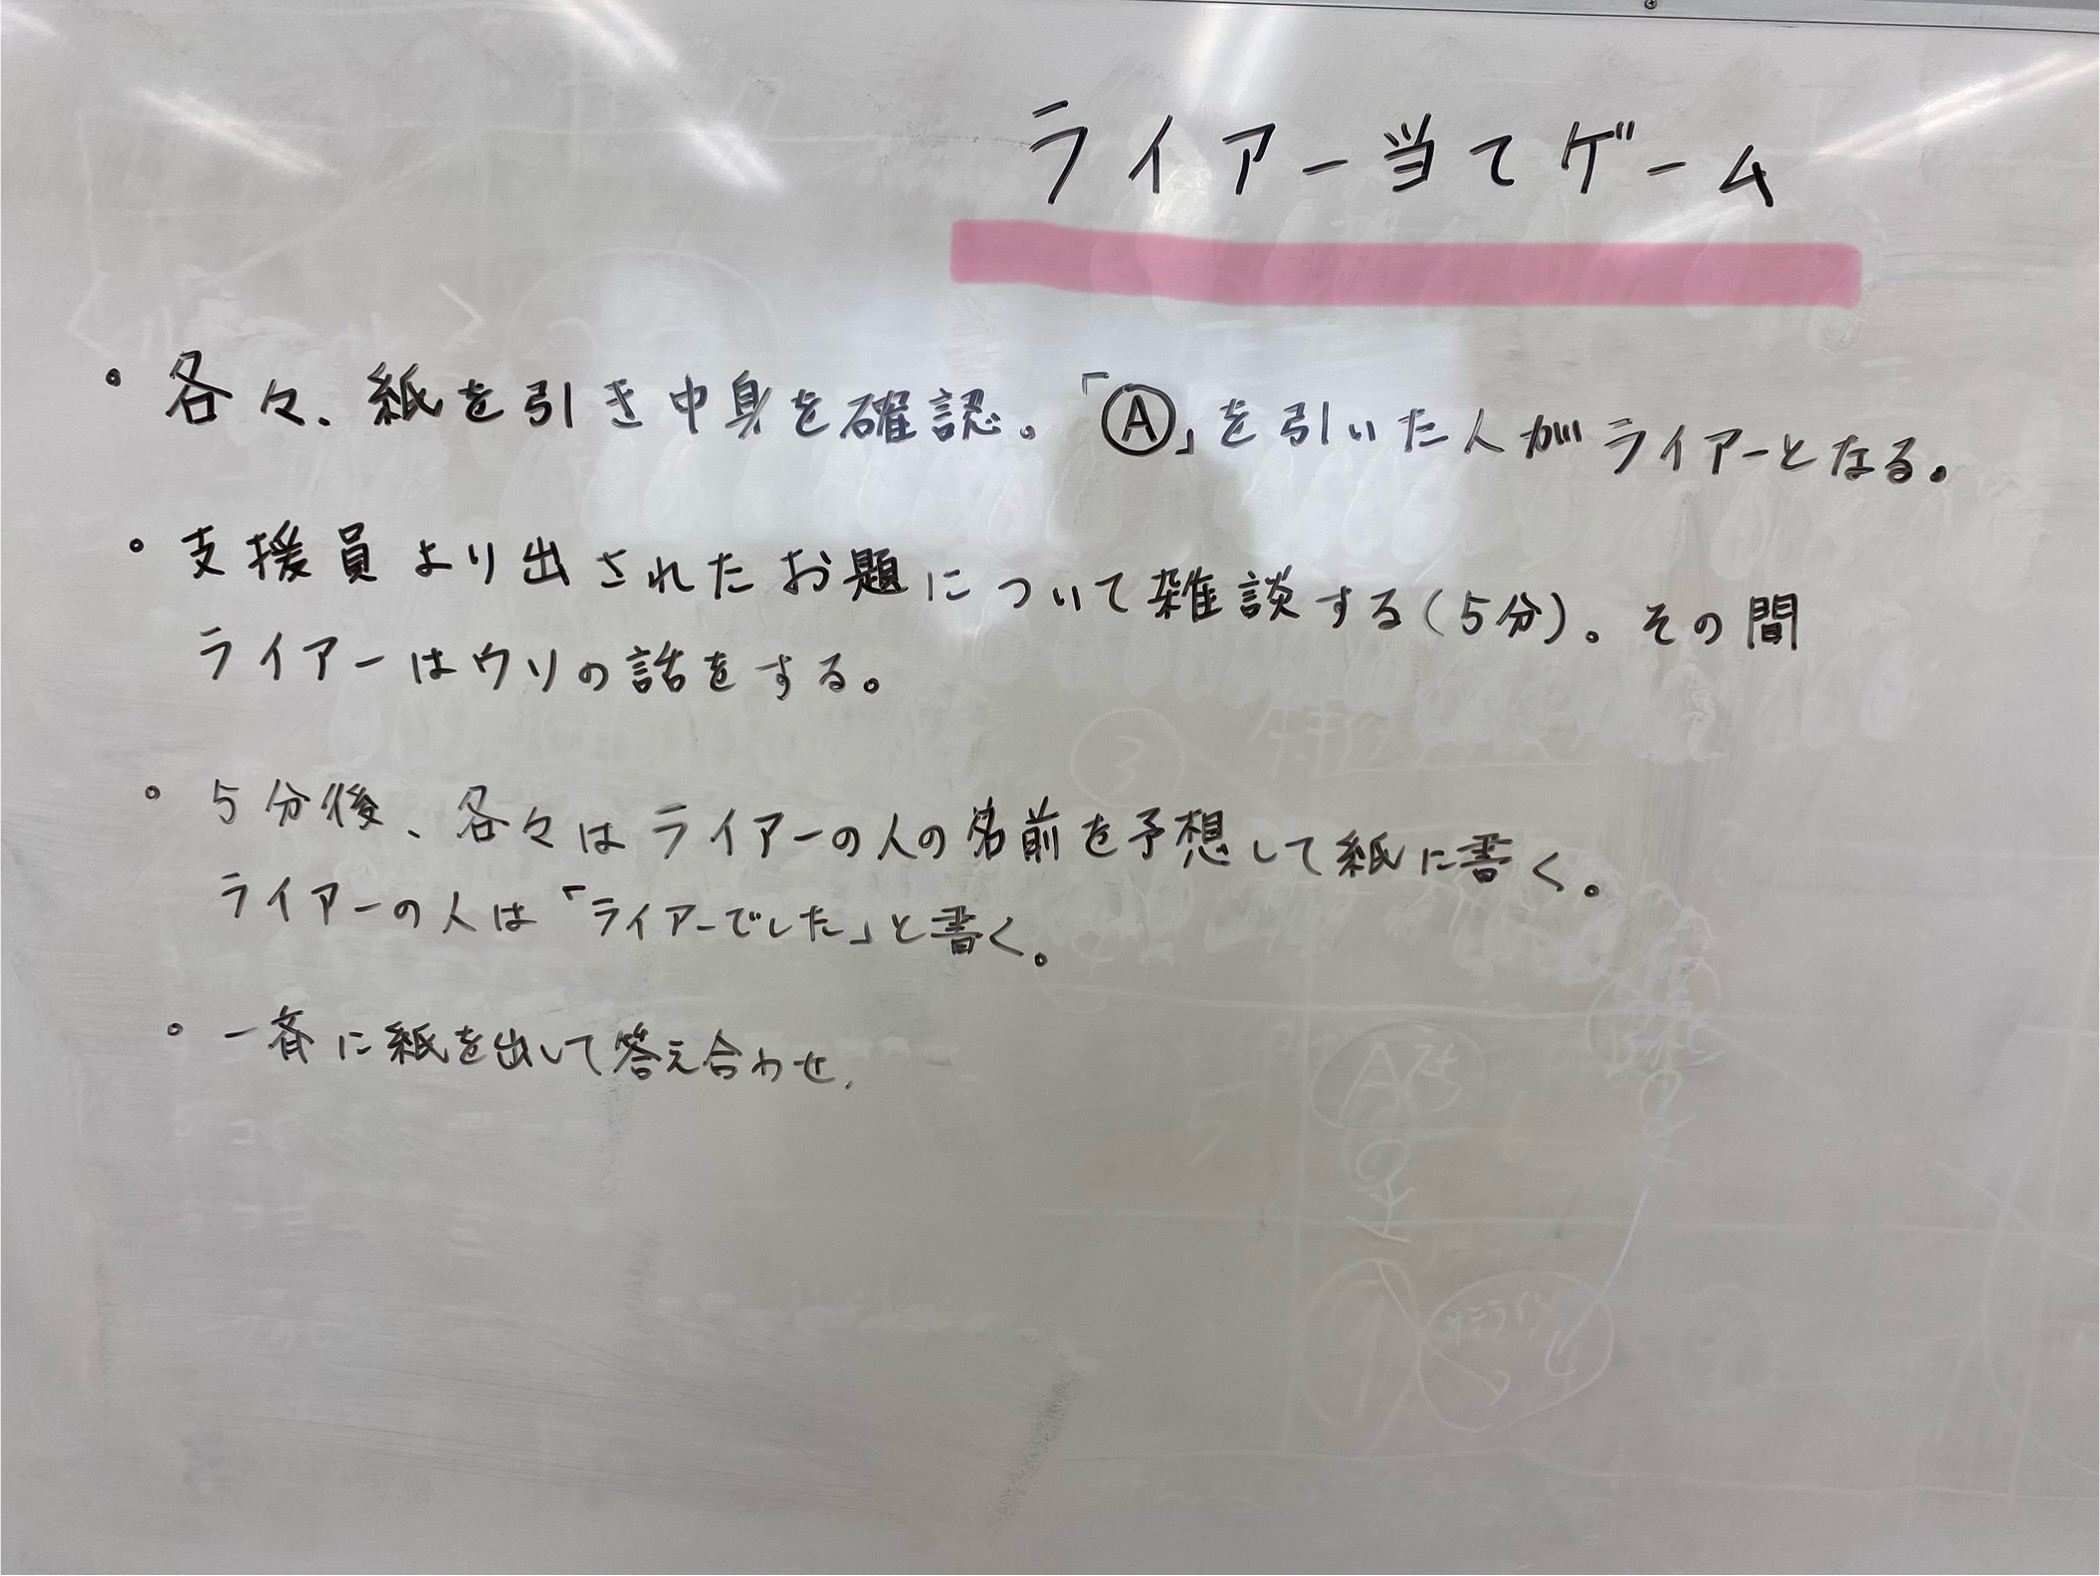 ライアー当てゲーム
・各々、紙を引き中身を確認。「Ⓐ」を引いた人がライアーとなる。
・支援員より出されたお題について雑談する(5分)。その間
ライアーはウソの話をする。
・5分後、各々はライアーの人の名前を予想して紙に書く。
ライアーの人は「ライアーでした」と書く。
・一斉に紙を出して答え合わせ.